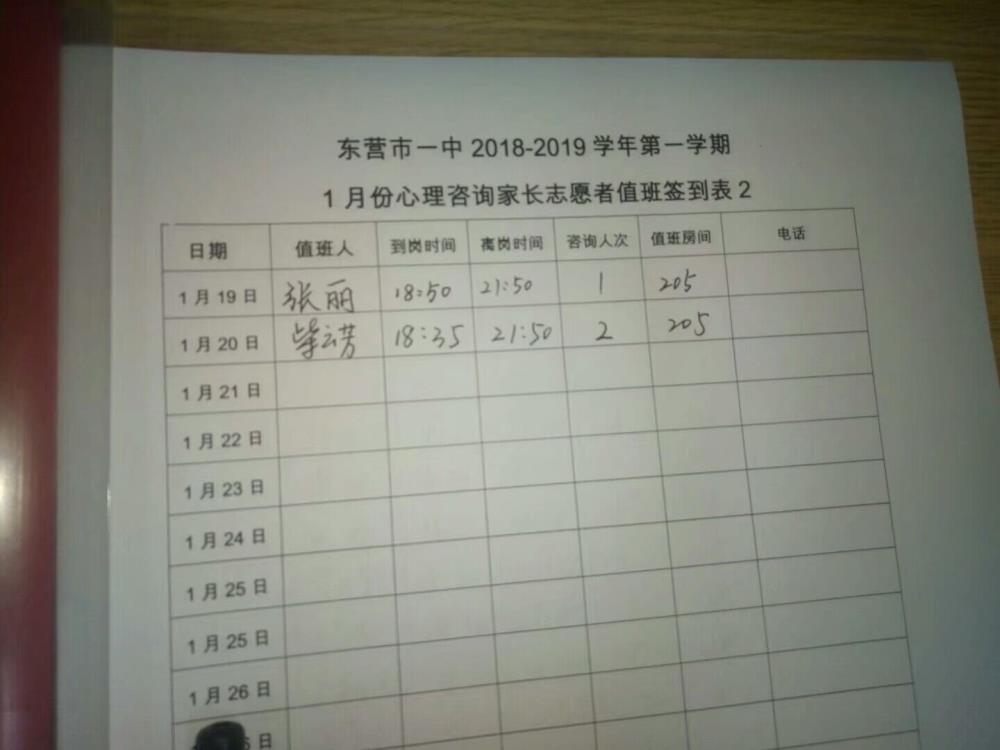 东营市一中 2018-2019 学年第一学期
1 月份心理咨询家长志愿者值班签到表 2
日期 值班人 到岗时间 离岗时间 咨询人次 值班房间 电话
1 月 19 日 张丽 18:50 21:50 1 205
1 月 20 日 柴云芳 18:35 21:50 2 205
1 月 21 日
1 月 22 日
1 月 23 日
1 月 24 日
1 月 25 日
1 月 25 日
1 月 26 日
日